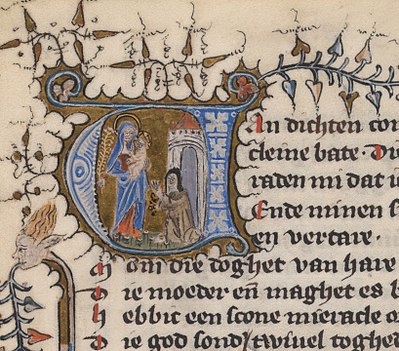 VAn dichten co
cleine bate· Die
raden mi dat i
Ende minen s
en vertare·
Om die doghet van hare
Die moeder en̄ maghet es b
Hebbic een scone mieracle o
Die god sond' twiuel toghed